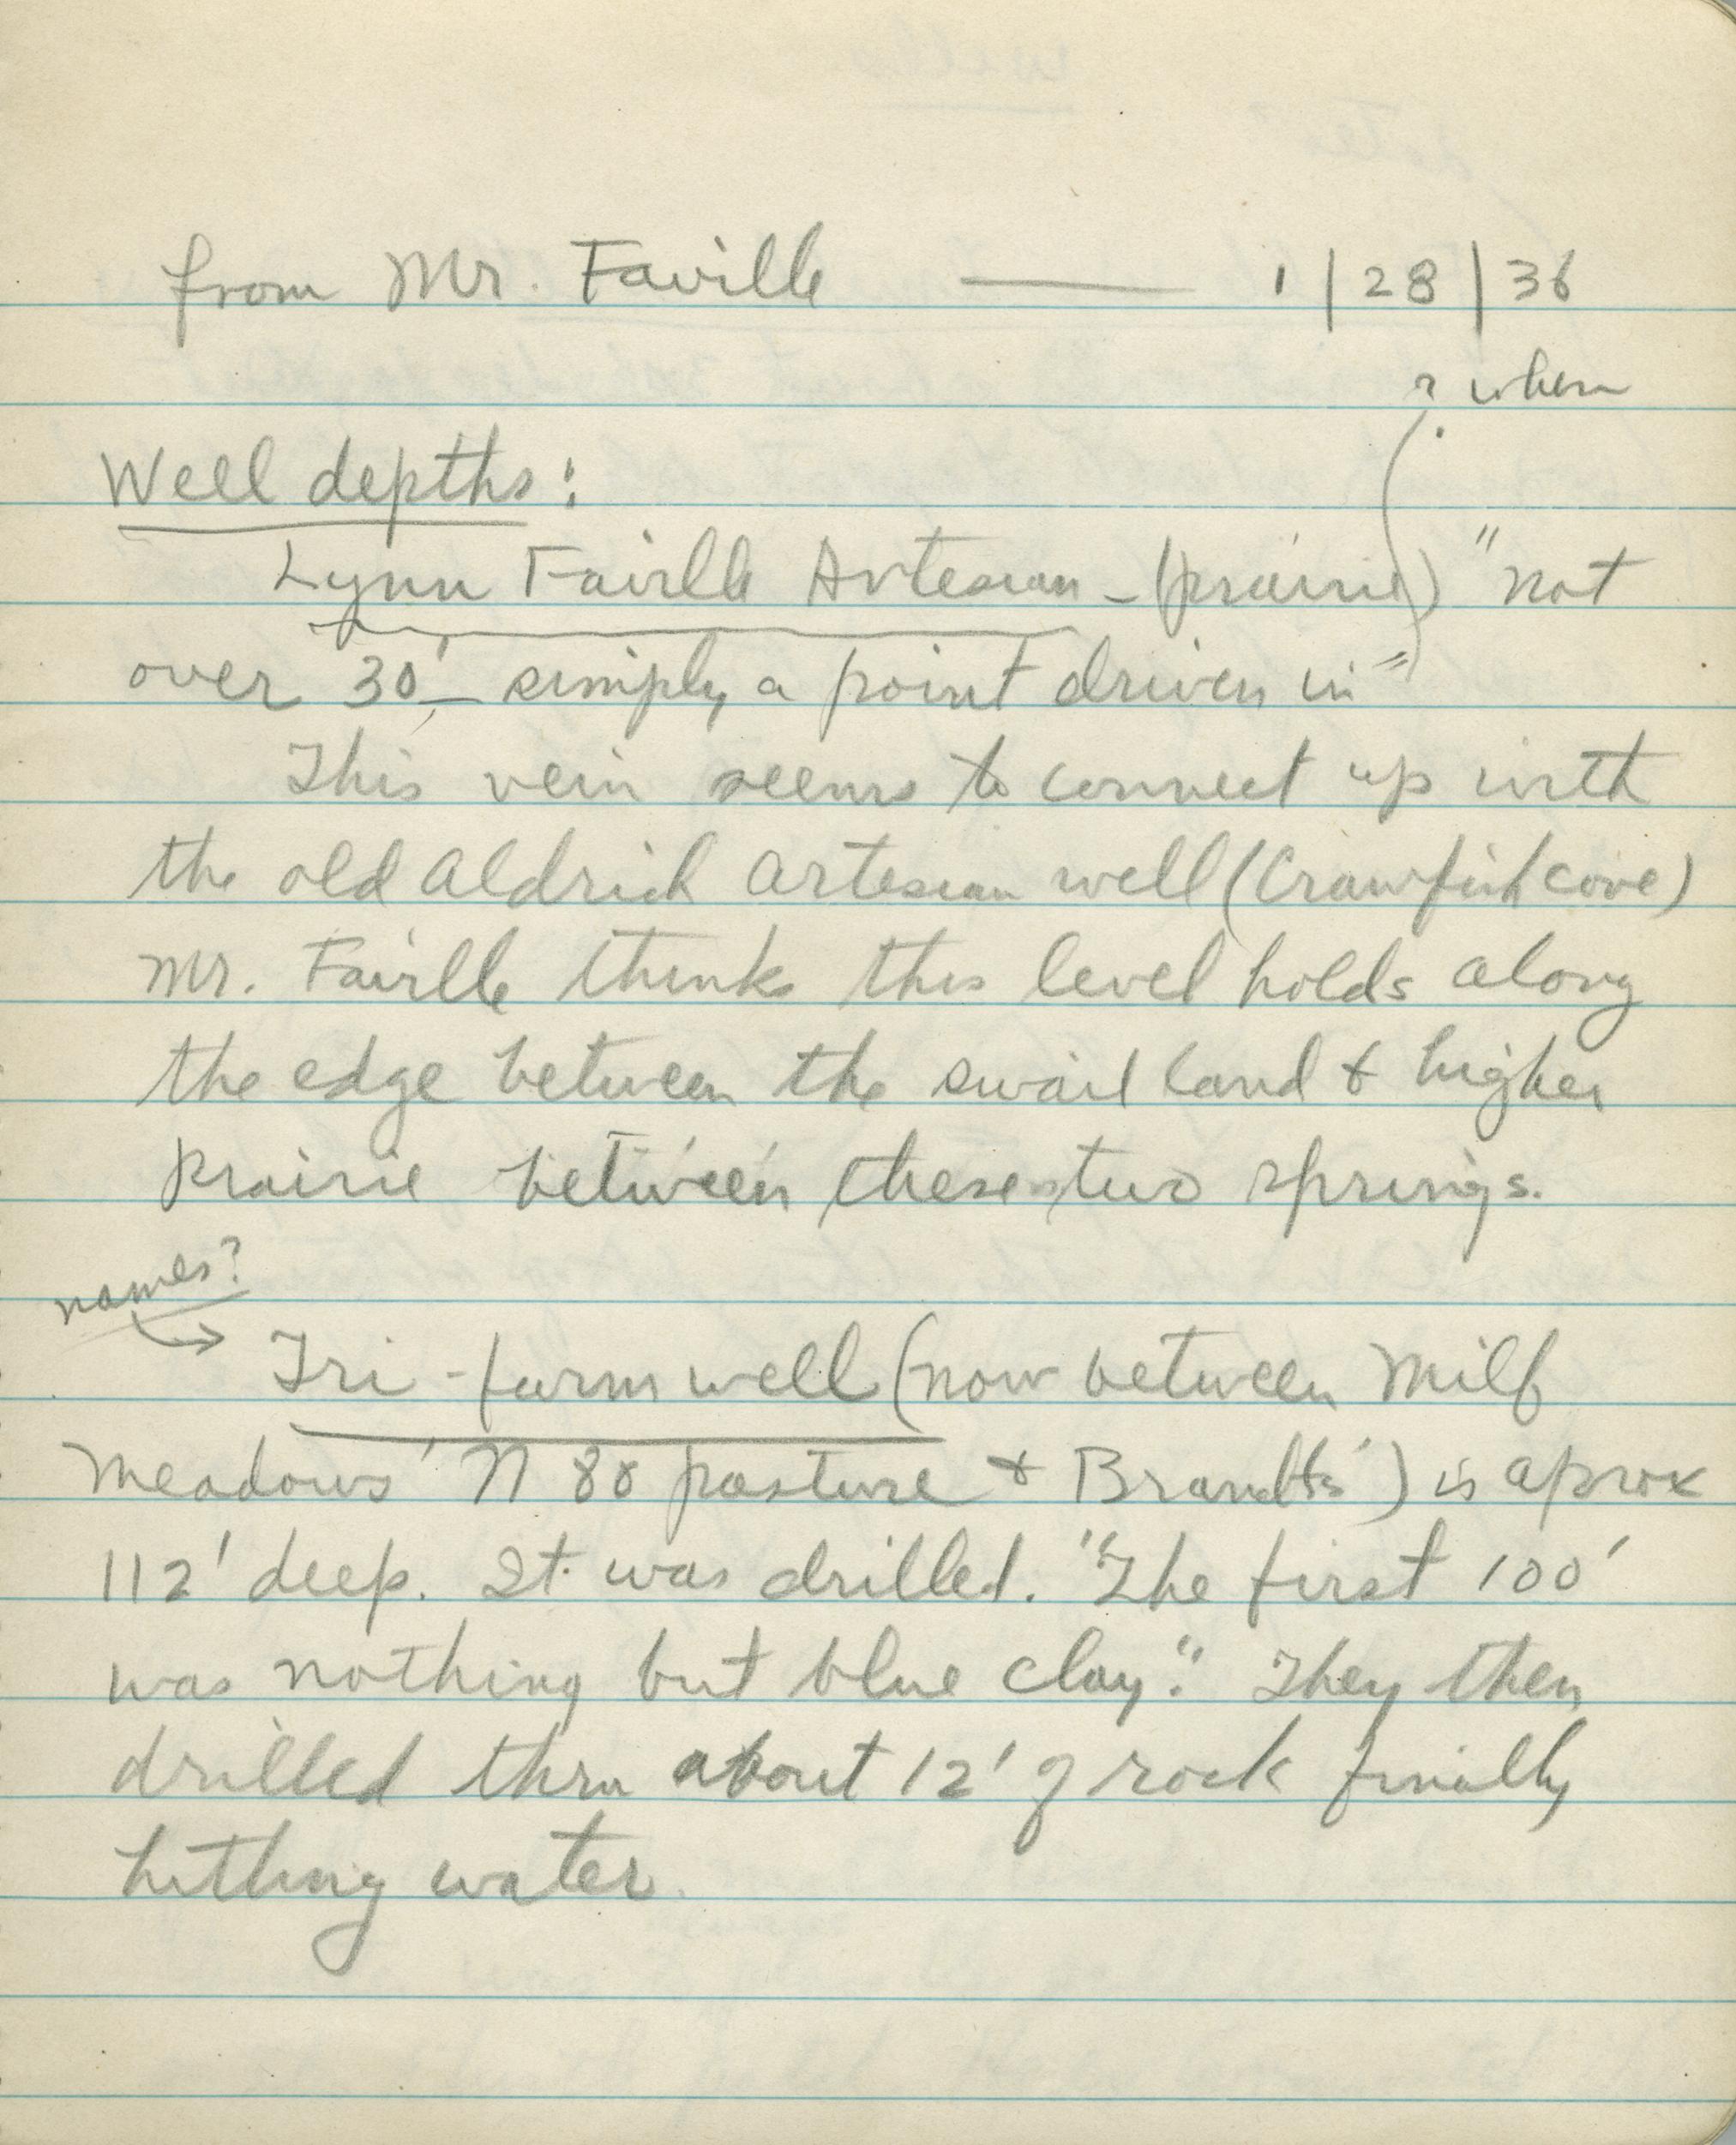 from Mr. Faville — 1/28/36
? when
Well depths:
Lynn Faville Artesian - (prairie) "not
over 30' — simply a point driven in"
This vein seems to connect up with
the old Aldrich artesian well (Crawfish cove)
Mr. Faville thinks this level holds along
the edge between the swail land & higher
prairie between these two springs.
names?
→ Tri-farm well (now between Milf
Meadows' N 80 pasture & Brandts') is aprox
112' deep. It was drilled. "The first 100'
was nothing but blue clay." They then
drilled thru about 12' of rock finally
hitting water.